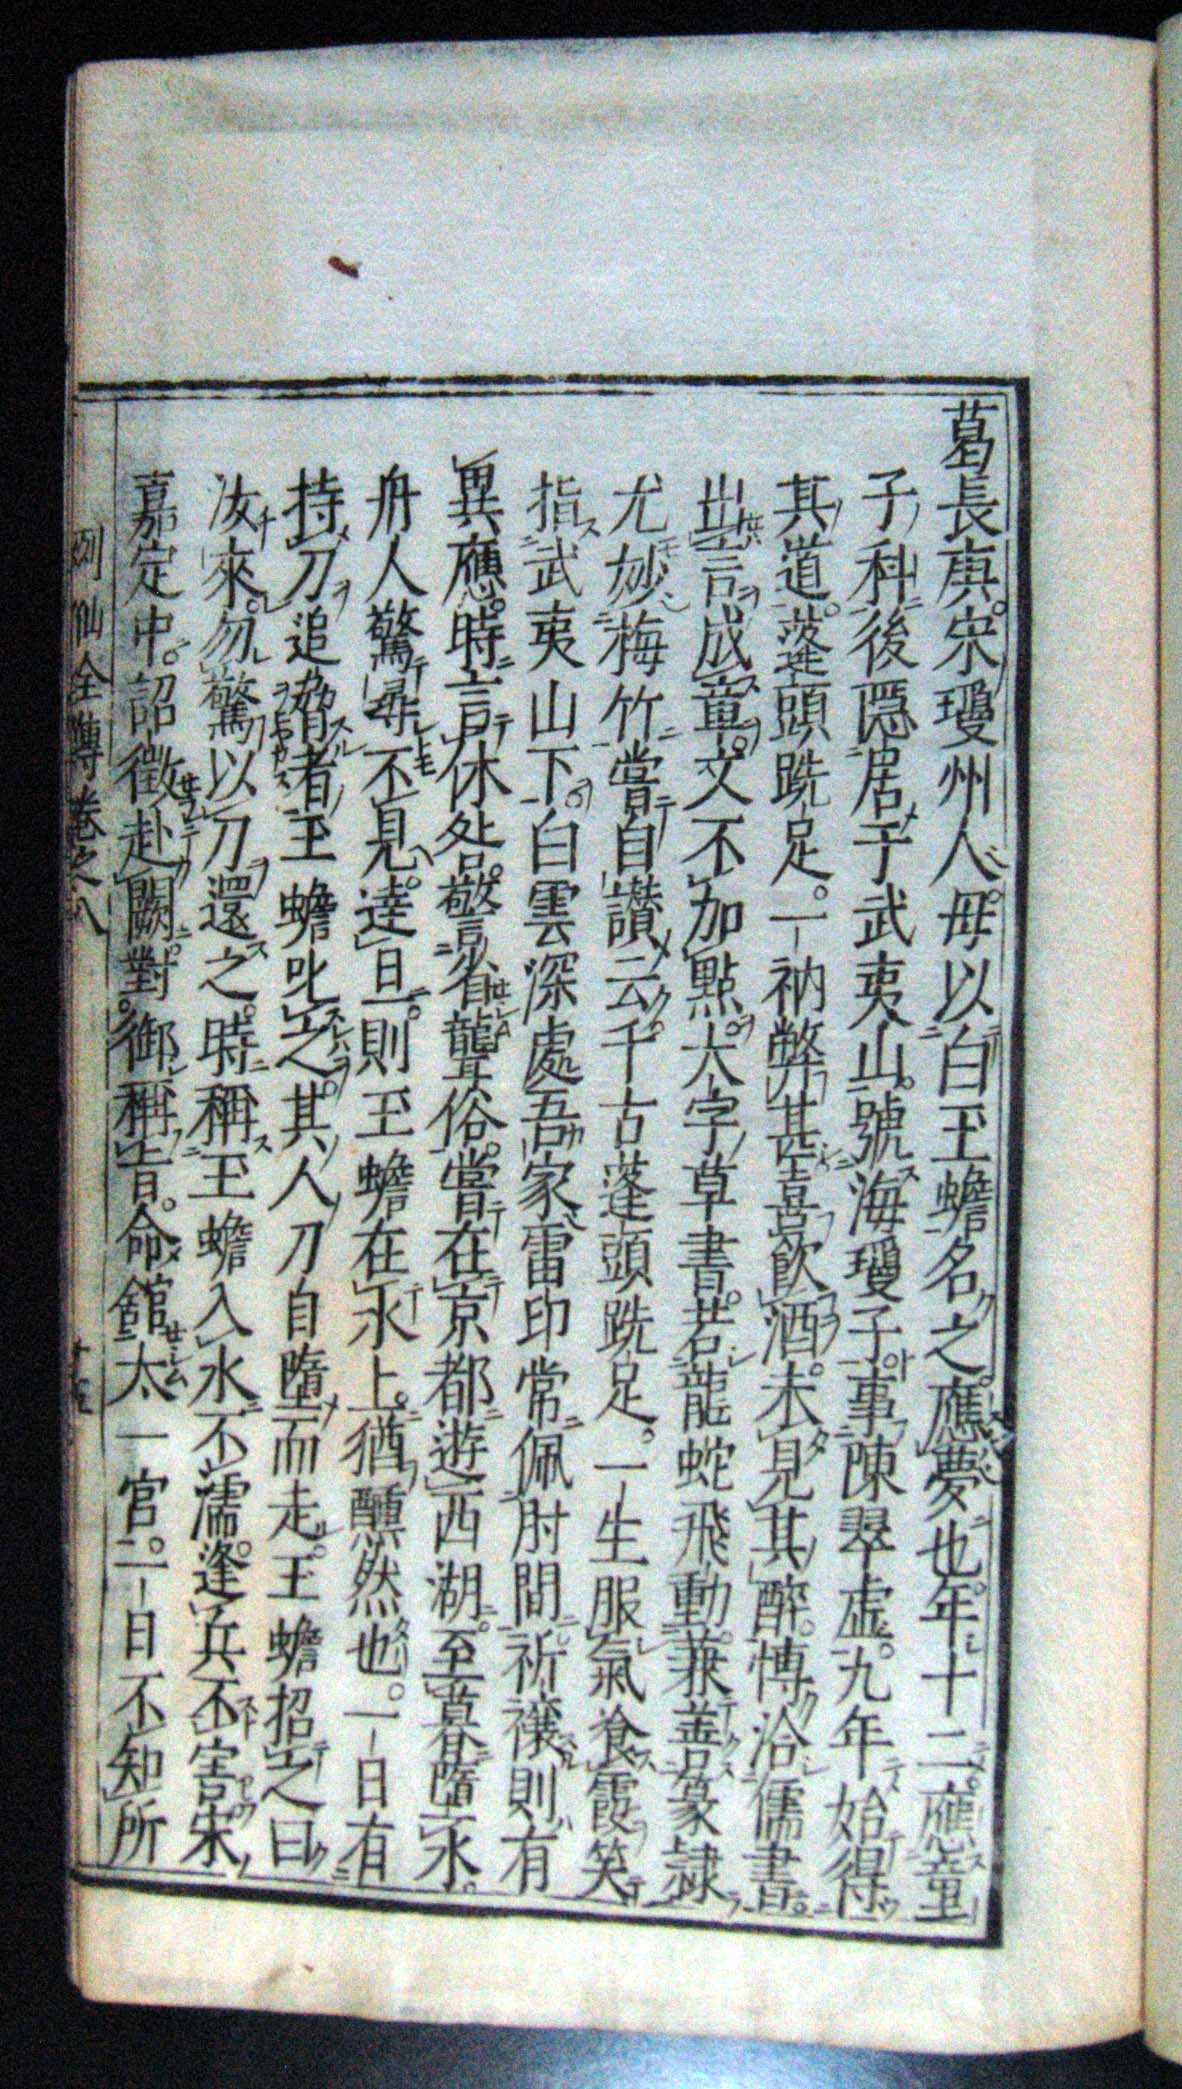 葛長庚宋瓊州人母以白玉蟾名之應夢也年十二應童
子科後隱居于武夷山號海瓊子事陳翠虛九年始得
其道蓬頭跣足一衲弊甚喜飲酒未見其醉博洽儒書
出言成章文不加點大字草書若龍蛇飛動兼善篆隸
尤妙梅竹嘗自讚云千古蓬頭跣足一生服氣飡霞笑
指武夷山下白雲深處吾家雷印常佩肘間祈禳則有
異應時言休咎警省聾俗嘗在京都遊西湖至暮墮水
舟人驚尋不見達旦則玉蟾在水上猶醺然也一日有
持刀追脅者玉蟾叱之其人刀自墮而走玉蟾招之曰
汝來勿驚以刀還之時稱玉蟾入水不濡逢兵不害宋
嘉定中詔徵赴闕對御稱旨命館太一官一日不知所
列仙全傳卷之八